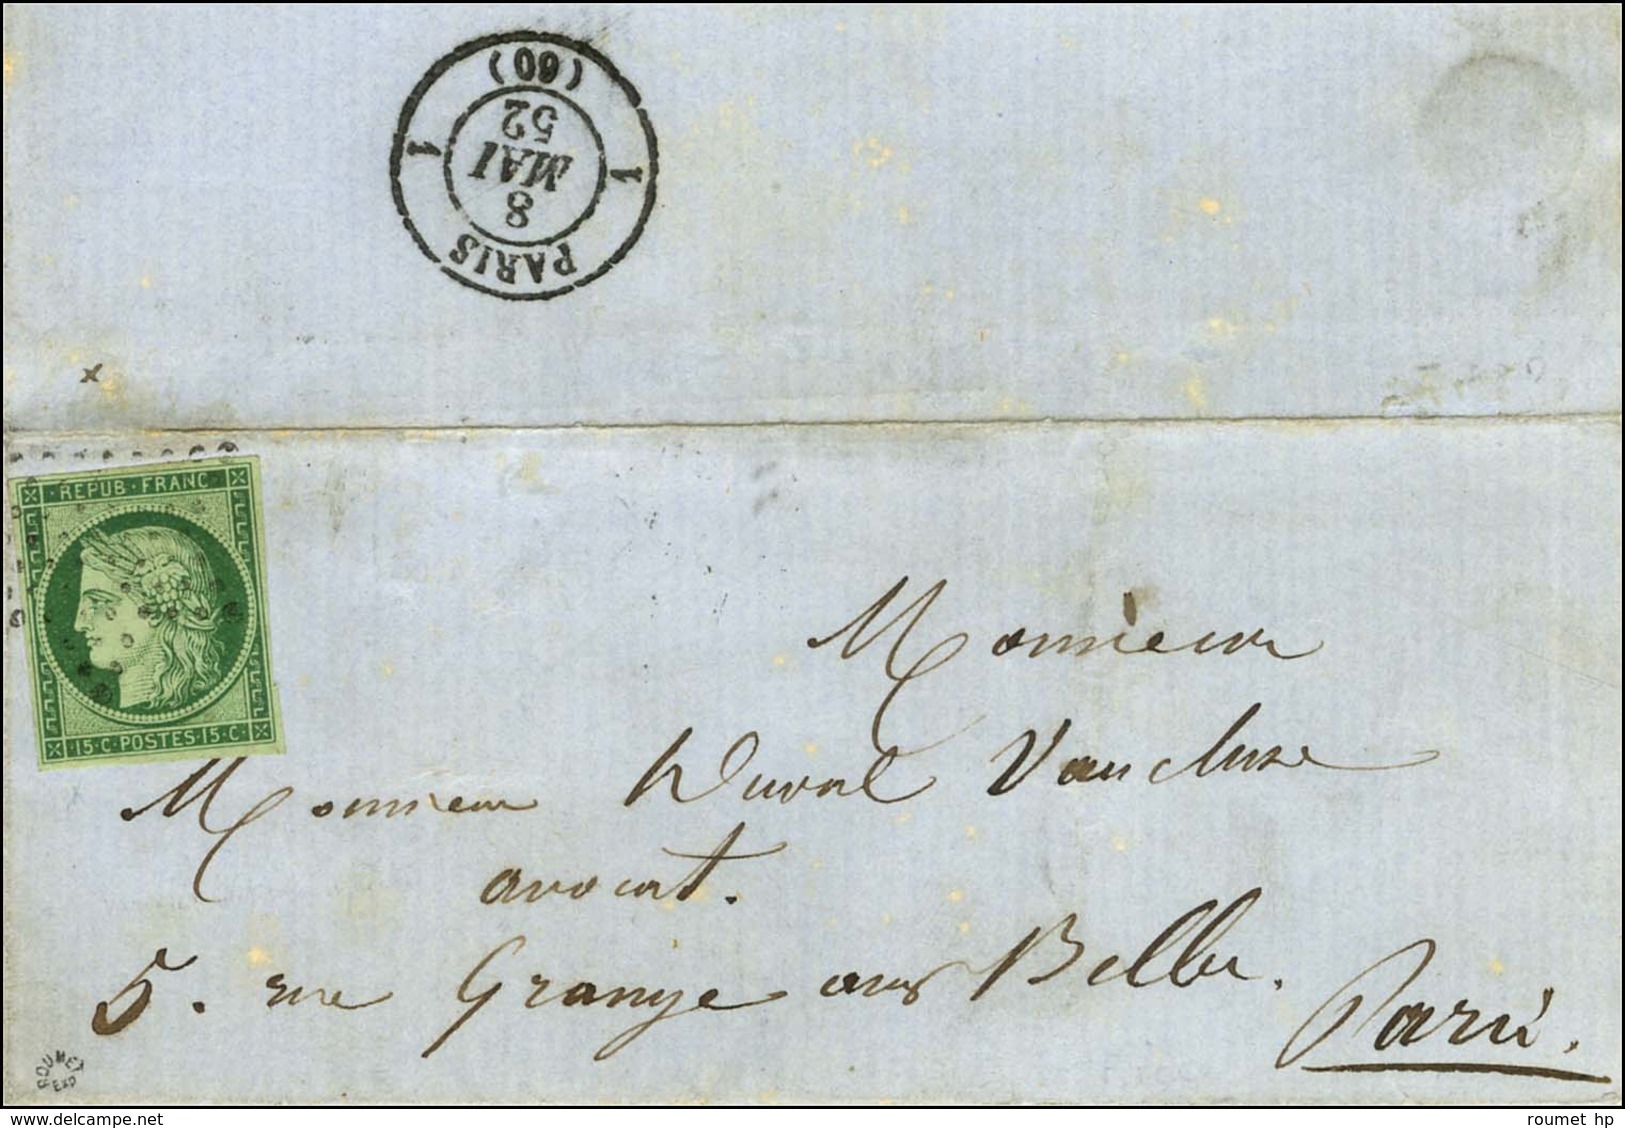 PARIS
1 1
8
MAI
52
(60)
x
REPUB · FRANC
15 · C · POSTES · 15 · C ·
Monsieur
Monsieur Duval Vaucluse
avocat.
5. rue Grange aux Belles.
Paris.
ROUMET
EXP
delcampe.net
roumet hp